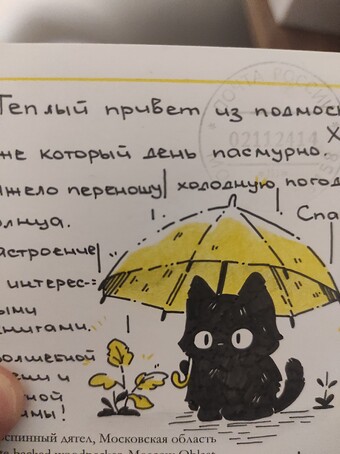 Теплый привет из подмоск
Х
же который день пасмурно.
яжело переношу холодную погод
олнца. Спа
астроение
интерес-
ыми
книгами.
олшебной
ени и
ной
имы!
ПОЧТА РОССИИ
02112414
оспинный дятел, Московская область
te-backed woodpecker, Moscow Oblast